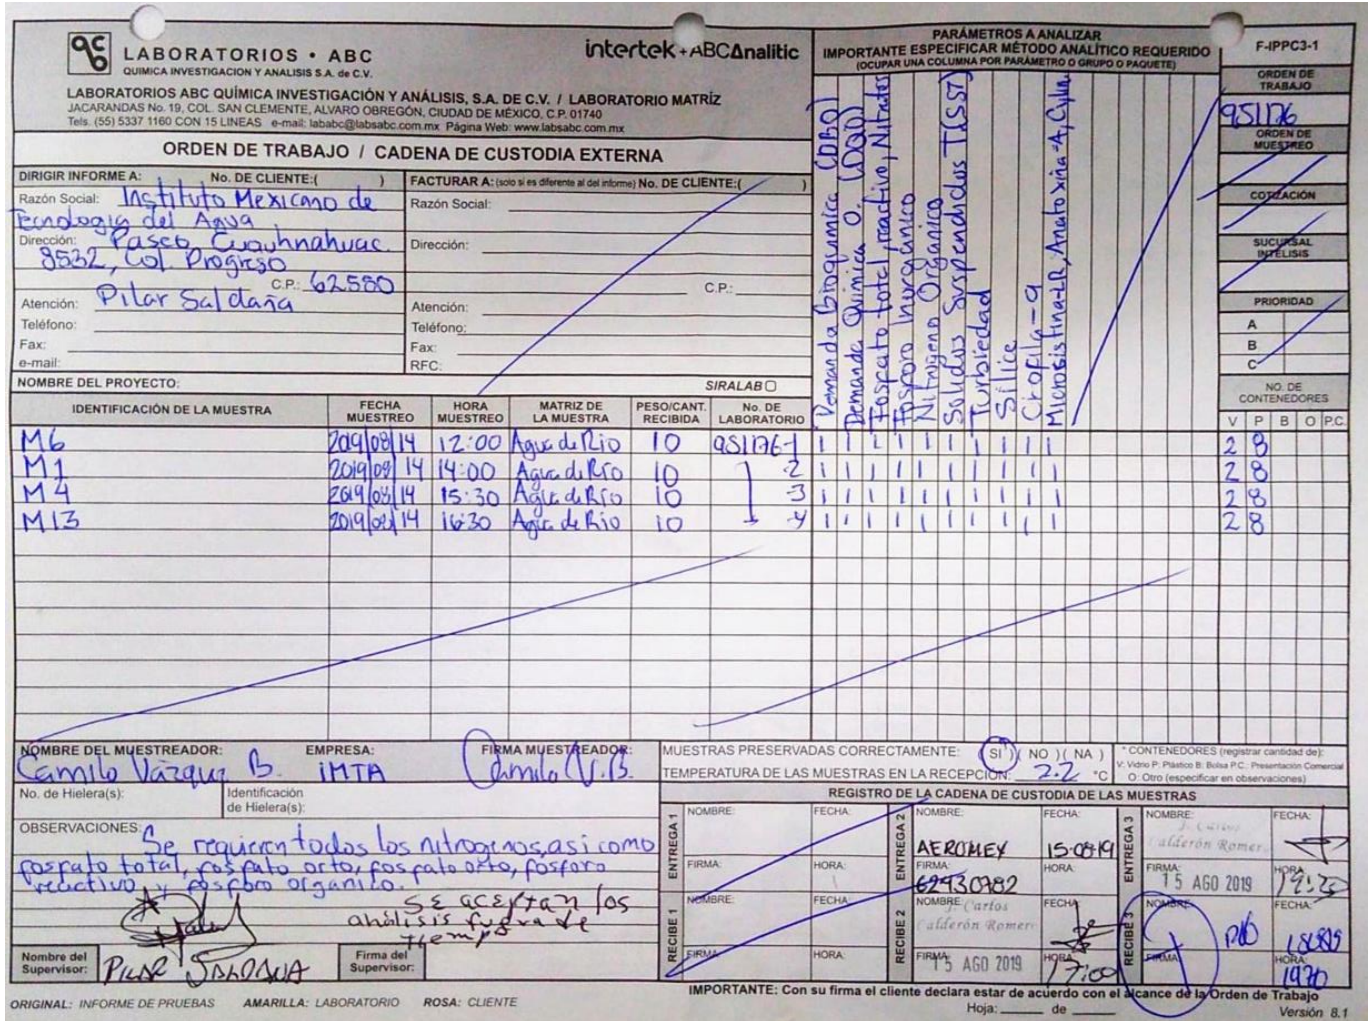 LABORATORIOS • ABC
QUIMICA INVESTIGACION Y ANALISIS S.A. de C.V.
intertek+ABCAnalitic
LABORATORIOS ABC QUÍMICA INVESTIGACIÓN Y ANÁLISIS, S.A. DE C.V. / LABORATORIO MATRÍZ
JACARANDAS No. 19, COL. SAN CLEMENTE, ALVARO OBREGÓN, CIUDAD DE MÉXICO, C.P. 01740
Tels. (55) 5337 1160 CON 15 LINEAS e-mail: lababc@labsabc.com.mx Página Web: www.labsabc.com.mx
ORDEN DE TRABAJO / CADENA DE CUSTODIA EXTERNA
PARÁMETROS A ANALIZAR
IMPORTANTE ESPECIFICAR MÉTODO ANALÍTICO REQUERIDO
(OCUPAR UNA COLUMNA POR PARÁMETRO O GRUPO O PAQUETE)
F-IPPC3-1
ORDEN DE TRABAJO
951176
ORDEN DE MUESTREO
COTIZACIÓN
SUCURSAL INTELISIS
PRIORIDAD
A
B
C
NO. DE CONTENEDORES
V P B O P.C.
DIRIGIR INFORME A: No. DE CLIENTE:( )
Razón Social: Instituto Mexicano de
Tecnologia del Agua
Dirección: Paseo Cuauhnahuac
8532, Col. Progreso
C.P.: 62550
Atención: Pilar Saldaña
Teléfono:
Fax:
e-mail:
FACTURAR A: (solo si es diferente al del informe) No. DE CLIENTE:( )
Razón Social:
Dirección:
C.P.:
Atención:
Teléfono:
Fax:
RFC:
Demanda Bioquimica (DBO)
Demanda Quimica O. (DQO)
Fosfato total, reactivo, Nitratos
Fosforo Inorganico
Nitrogeno Organico
Solidos Suspendidos T(SST)
Turbiedad
Sílice
Clrofila-a
Microsistina-LR, Anatoxina-A, Cylin
NOMBRE DEL PROYECTO: SIRALAB
IDENTIFICACIÓN DE LA MUESTRA FECHA MUESTREO HORA MUESTREO MATRIZ DE LA MUESTRA PESO/CANT. RECIBIDA No. DE LABORATORIO
M6 2019/08/14 12:00 Agua de Rio 10 951176-1 1 1 1 1 1 1 1 1 1 1 2 8
M1 2019/08/14 14:00 Agua de Rio 10 -2 1 1 1 1 1 1 1 1 1 1 2 8
M4 2019/08/14 15:30 Agua de Rio 10 -3 1 1 1 1 1 1 1 1 1 1 2 8
M13 2019/08/14 16:30 Agua de Rio 10 -4 1 1 1 1 1 1 1 1 1 1 2 8
NOMBRE DEL MUESTREADOR: EMPRESA: FIRMA MUESTREADOR:
Camilo Vázquz B. IMTA Camilo V.B.
No. de Hielera(s): Identificación de Hielera(s):
OBSERVACIONES: Se requieren todos los nitrogenos, asi como
fosfato total, fosfato orto, fosfato orto, fosforo
reactivo y fosforo organico.
SE aceptan los
análisis fuera de
tiempo
Nombre del Supervisor: PILAR SALDAÑA
Firma del Supervisor:
MUESTRAS PRESERVADAS CORRECTAMENTE: (SI) ( NO ) ( NA )
TEMPERATURA DE LAS MUESTRAS EN LA RECEPCIÓN: 2.2 °C
* CONTENEDORES (registrar cantidad de):
V: Vidrio P: Plástico B: Bolsa P.C.: Presentación Comercial
O: Otro (especificar en observaciones)
REGISTRO DE LA CADENA DE CUSTODIA DE LAS MUESTRAS
ENTREGA 1
NOMBRE: FECHA:
FIRMA: HORA:
RECIBE 1
NOMBRE: FECHA:
FIRMA: HORA:
ENTREGA 2
NOMBRE: AEROMEX FECHA: 15-08-19
FIRMA: 62930782 HORA:
RECIBE 2
NOMBRE: J. Carlos
Calderón Romer FECHA:
FIRMA: 15 AGO 2019 HORA: 17:00
ENTREGA 3
NOMBRE: J. Carlos
Calderón Romer FECHA:
FIRMA: 15 AGO 2019 HORA:
RECIBE 3
NOMBRE: FECHA:
FIRMA: HORA: 1920
IMPORTANTE: Con su firma el cliente declara estar de acuerdo con el alcance de la Orden de Trabajo
ORIGINAL: INFORME DE PRUEBAS AMARILLA: LABORATORIO ROSA: CLIENTE
Hoja: de
Versión 8.1